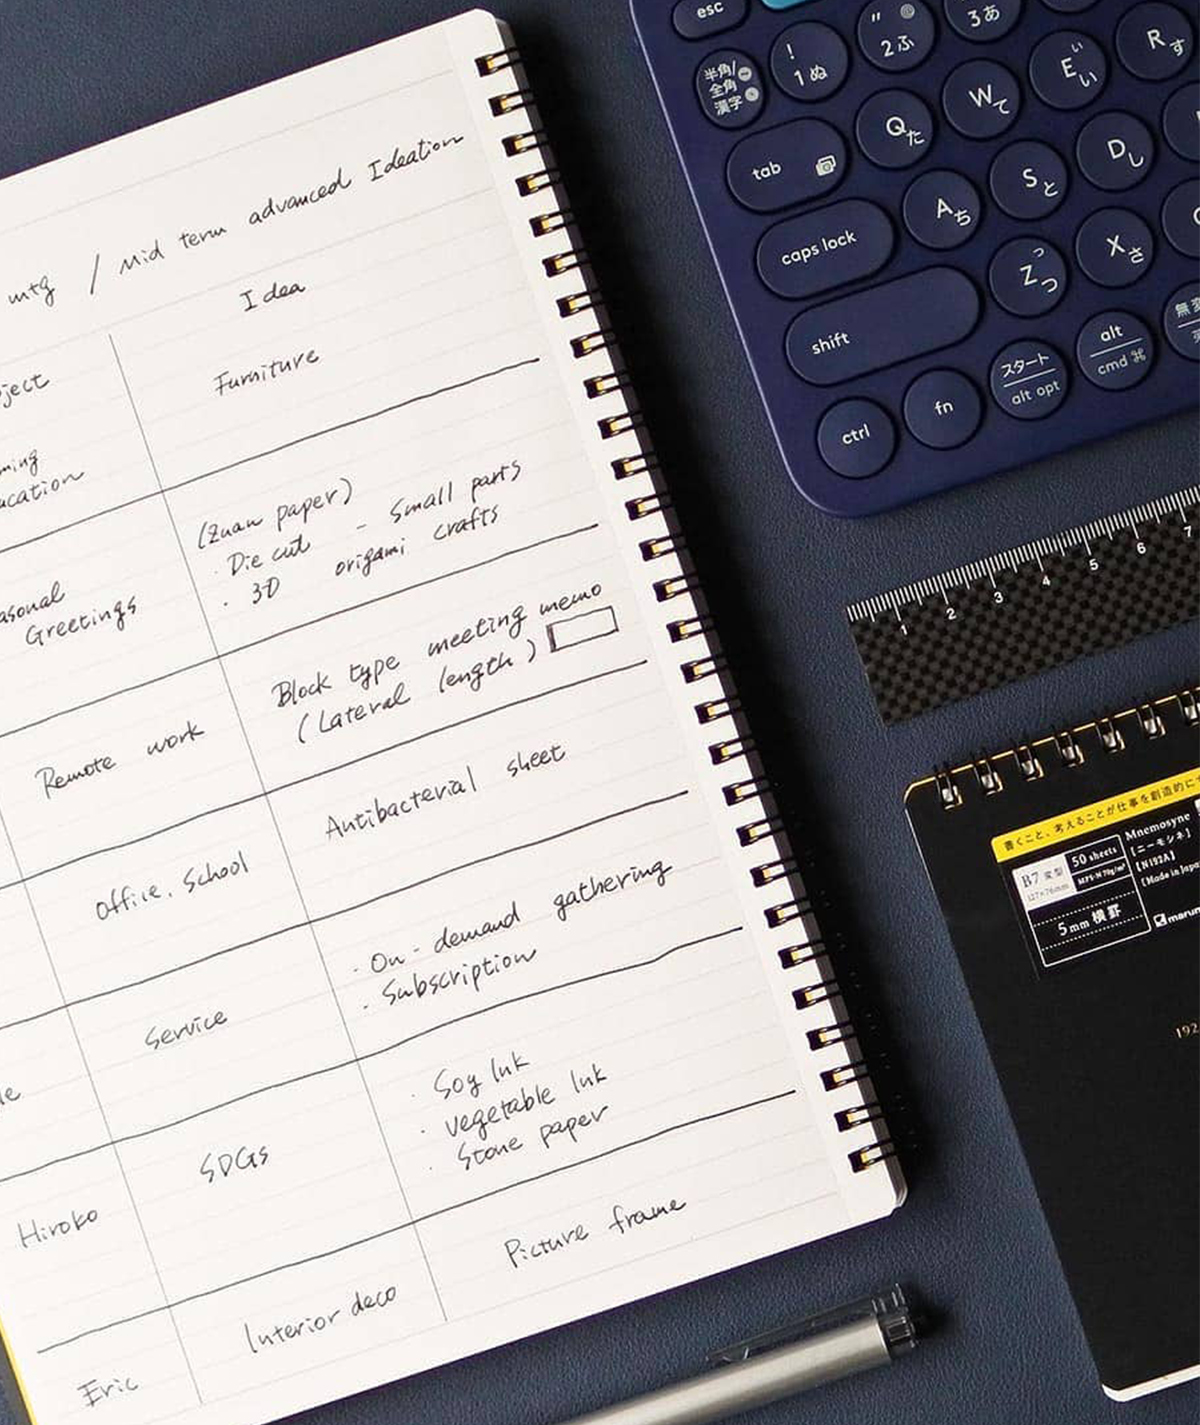 mtg / Mid term advanced Ideation
Idea
Furniture
(Zuan paper)
· Die cut - Small parts
· 3D origami crafts
Greetings
Block type meeting memo
(Lateral length)
Remote work
Antibacterial sheet
Office. School
· On-demand gathering
· Subscription
Service
· Soy Ink
· vegetable Ink
· Stone paper
Hiroko
SDGs
Picture frame
Eric
Interior deco
esc
半角/
全角
漢字
!
1 ぬ
" @
2 ふ
3 あ
tab
Q た
W て
E ぃ い
R す
caps lock
A ち
S と
D し
shift
Z っ つ
X さ
ctrl
fn
スタート
alt opt
alt
cmd ⌘
1 2 3 4 5 6 7
書くこと、考えることが仕事を創造的に
B7 変型
127×76mm
50 sheets
5mm 横罫
Mnemosyne
[ニーモシネ]
[N192A]